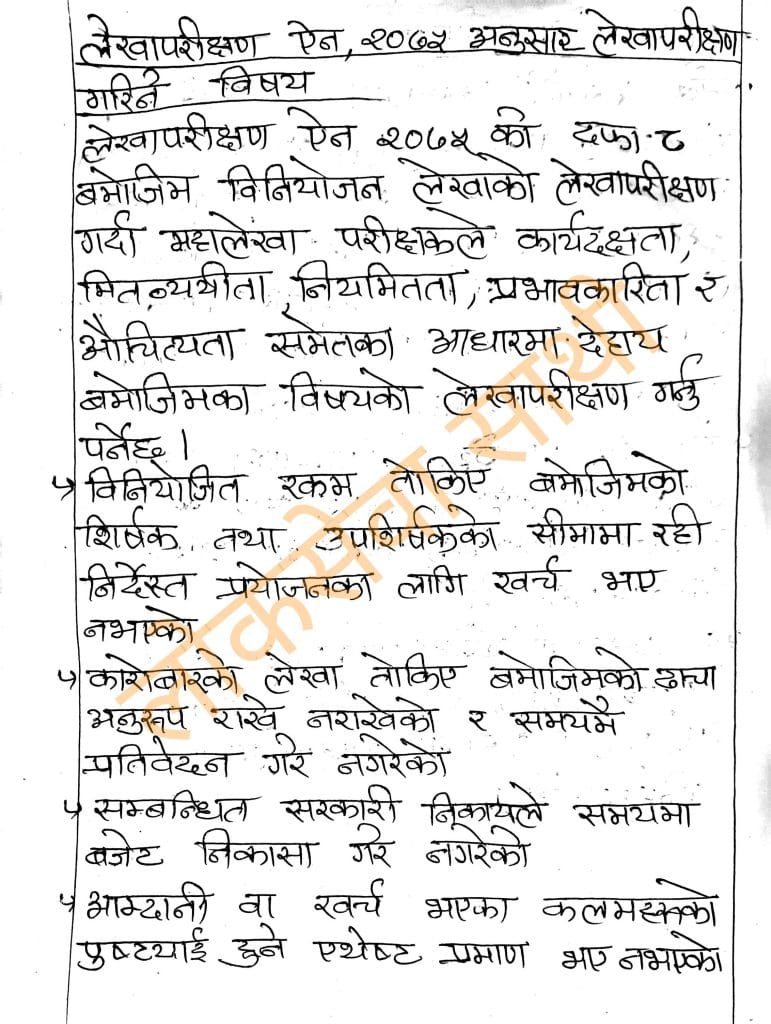 लेखापरीक्षण ऐन, २०७५ अनुसार लेखापरीक्षण
गरिने विषय
लेखापरीक्षण ऐन २०७५ को दफा ८
बमोजिम विनियोजन लेखाको लेखापरीक्षण
गर्दा महालेखा परीक्षकले कार्यदक्षता,
मितव्ययीता, नियमितता, प्रभावकारिता र
औचित्यता समेतका आधारमा देहाय
बमोजिमका विषयको लेखापरीक्षण गर्नु
पर्नेछ।
↳ विनियोजित रकम तोकिए बमोजिमको
शिर्षक तथा उपशिर्षकको सीमामा रही
निर्देस्त प्रयोजनका लागि खर्च भए
नभएको
↳ कारोबारको लेखा तोकिए बमोजिमको ढाचा
अनुरूप राखे नराखेको र समयमै
प्रतिवेदन गरे नगरेको
↳ सम्बन्धित सरकारी निकायले समयमा
बजेट निकासा गरे नगरेको
↳ आम्दानी वा खर्च भएका कलमहरूको
पुष्ट्याई हुने यथेष्ट प्रमाण भए नभएको
लोकसेवा साथी